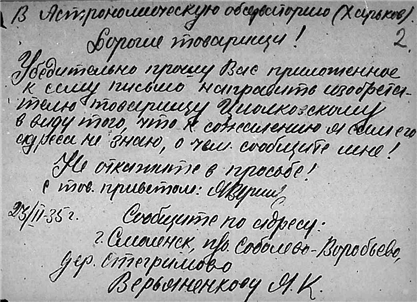 В Астрономическую обсерваторию (Харьков)
2.
Дорогие товарищи!
Убедительно прошу Вас приложенное
к сему письмо направить изобрета-
телю товарищу Циолковскому
в виду того, что к сожалению я сам его
адреса не знаю, о чем сообщите мне!
Не откажите в просьбе!
с тов. приветом:
23/II-35 г.
Сообщите по адресу:
г. Смоленск, п/о Соболево-Воробьево,
дер. Стегримово
Верьяненкову Я. К.